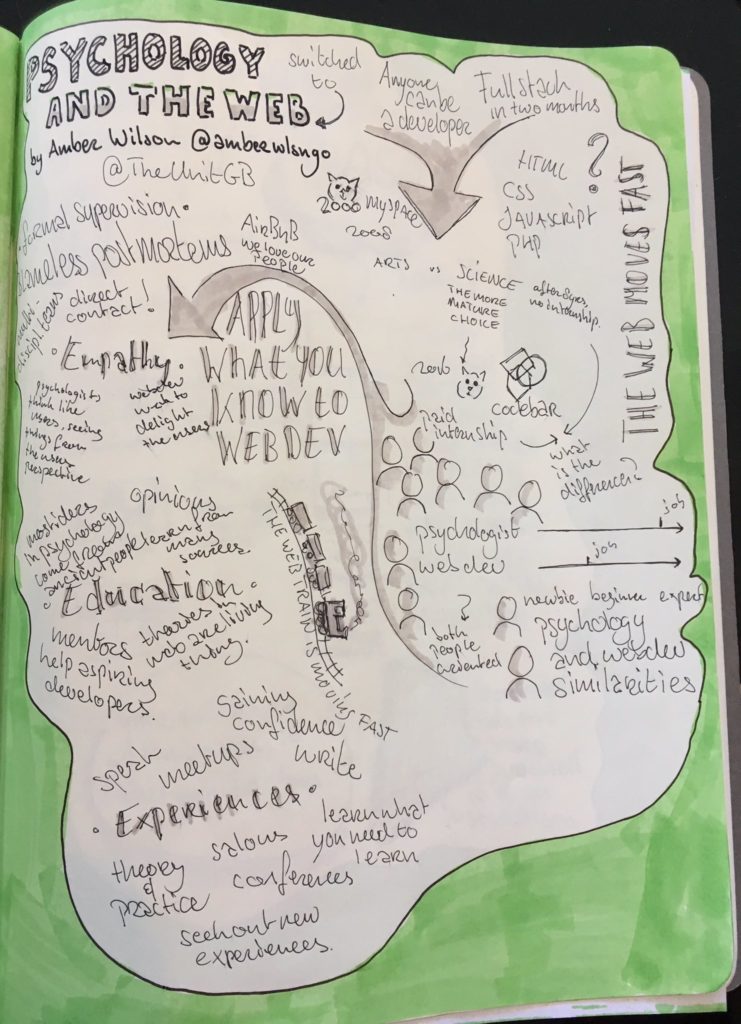 PSYCHOLOGY
AND THE WEB
by Amber Wilson @ambrwlsngo
@TheUnitGB
switched
to
Anyone
can be
a developer
Full stack
in two months
HTML
CSS
JAVASCRIPT
PHP
?
THE WEB MOVES FAST
2000 myspace
2008
ARTS vs SCIENCE
THE MORE
MATURE
CHOICE
after 8 yrs,
no internship.
2016
codebar
paid
internship
what
is the
difference?
formal supervision.
blameless postmortems
AirBnB
we love our
people
discipl. teams
direct
contact!
• Empathy •
psychologists
think like
users, seeing
things from
the users
perspective
webdev
want to
delight
the users
APPLY
WHAT YOU
KNOW TO
WEBDEV
psychologist
job
webdev
job
?
both
people
oriented
newbie beginner expert
psychology
and webdev
similarities
THE WEB TRAIN IS MOVING FAST
most ideas
in psychology
come from
ancient people
opinions
learn from
many
sources.
• Education •
mentors
help aspiring
developers.
theories in
web are living
thing.
gaining
confidence
speak
meetups
write
• Experiences •
theory
&
practice
salons
conferences
learn what
you need to
learn
seek out new
experiences.